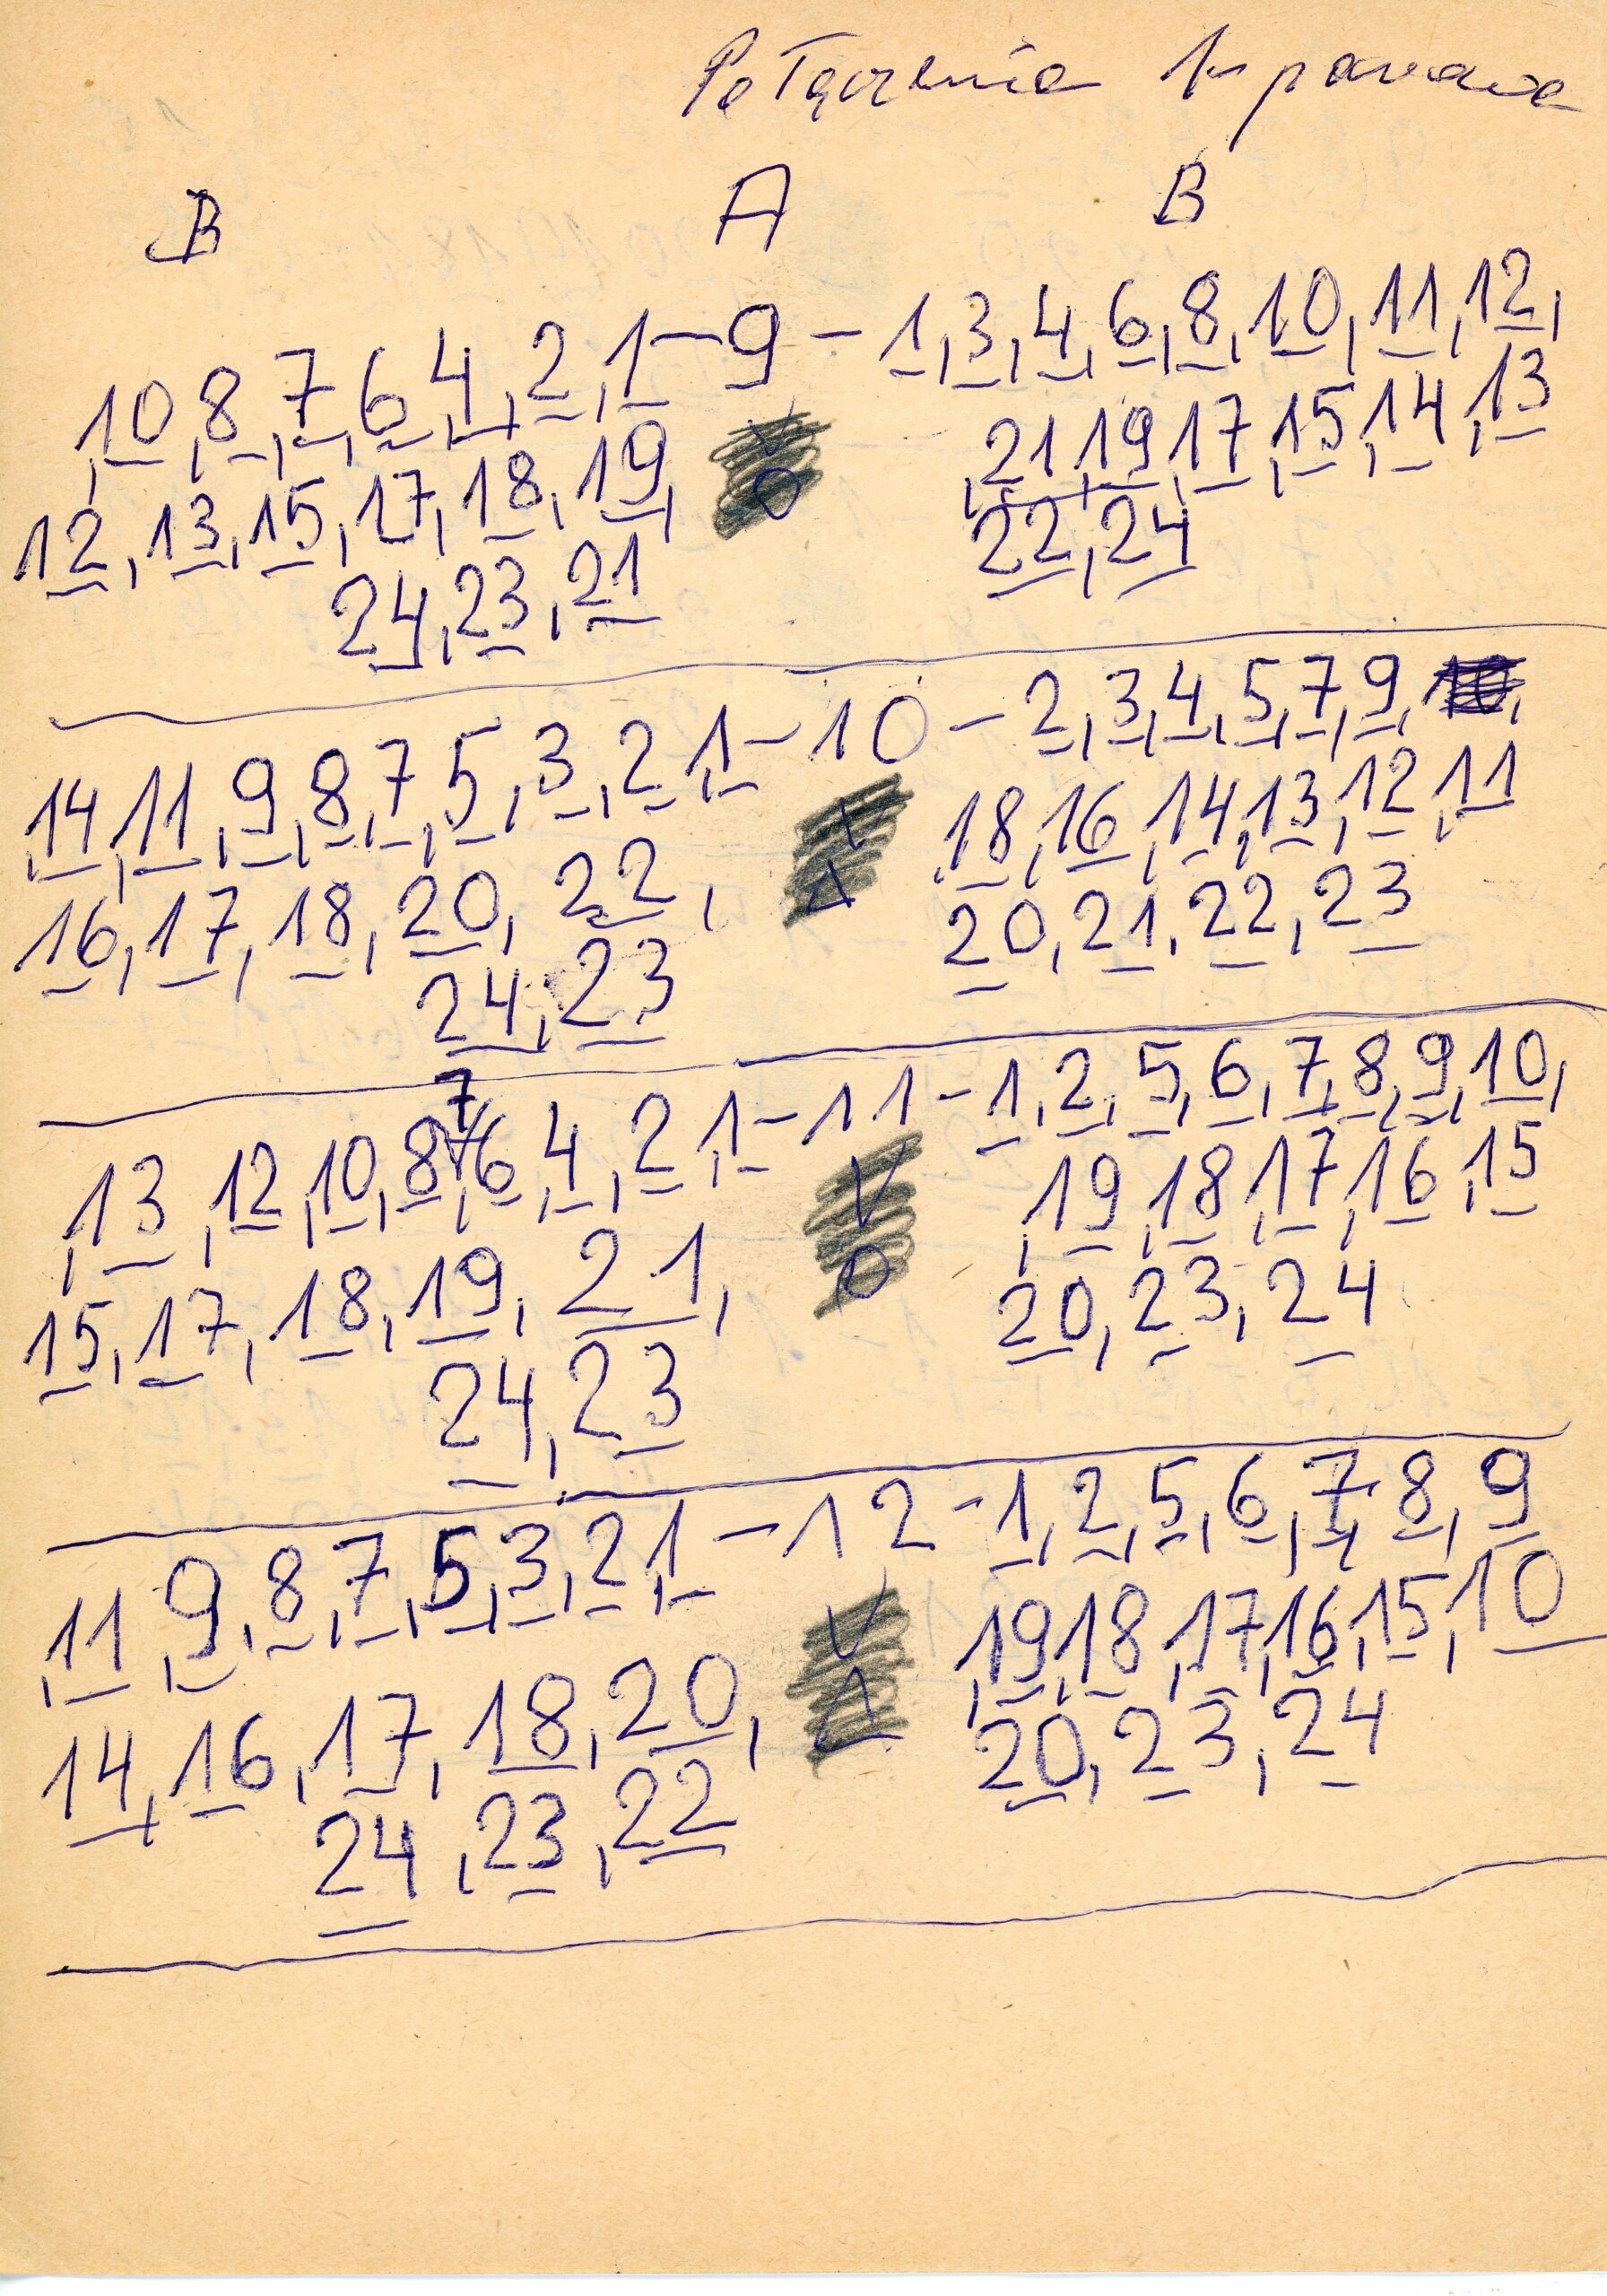 Połączenia 1-
B A B
10, 8, 7, 6, 4, 2, 1 - 9 - 1, 3, 4, 6, 8, 10, 11, 12,
12, 13, 15, 17, 18, 19, , 21, 19, 17, 15, 14, 13
24, 23, 21 22, 24
14, 11, 9, 8, 7, 5, 3, 2, 1 - 10 - 2, 3, 4, 5, 7, 9,
16, 17, 18, 20, 22, 18, 16, 14, 13, 12, 11
24, 23 20, 21, 22, 23
7
13, 12, 10, 8, 6, 4, 2, 1 - 11 - 1, 2, 5, 6, 7, 8, 9, 10,
15, 17, 18, 19, 21, V , 19, 18, 17, 16, 15
24, 23 20, 23, 24
11, 9, 8, 7, 5, 3, 2, 1 - 12 - 1, 2, 5, 6, 7, 8, 9
14, 16, 17, 18, 20, V , 19, 18, 17, 16, 15, 10
24, 23, 22 20, 23, 24